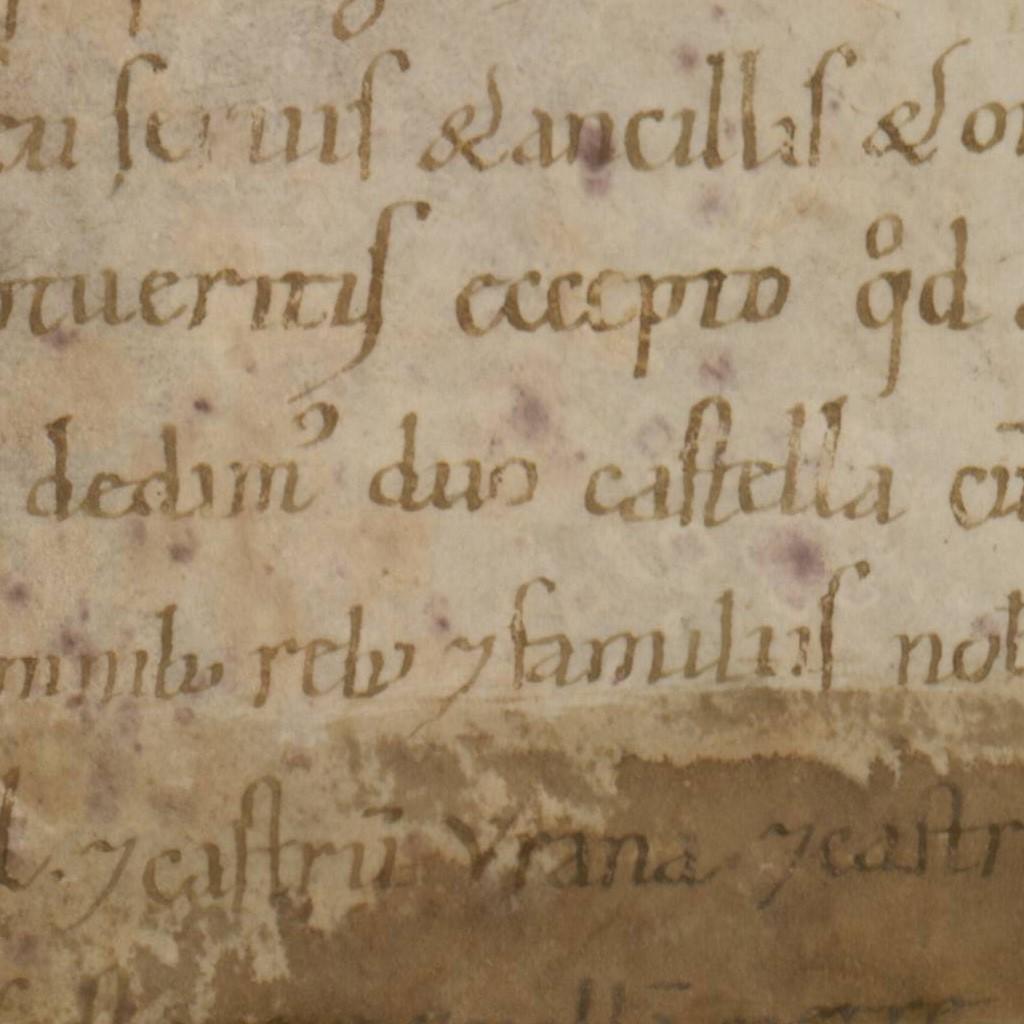 cu seruis & ancillis & om
tueritis excepto qͦd
dedimꝰ duo castella cū
mnib; reb; ⁊ familiis nob
⁊ castrū Vrana ⁊ castr